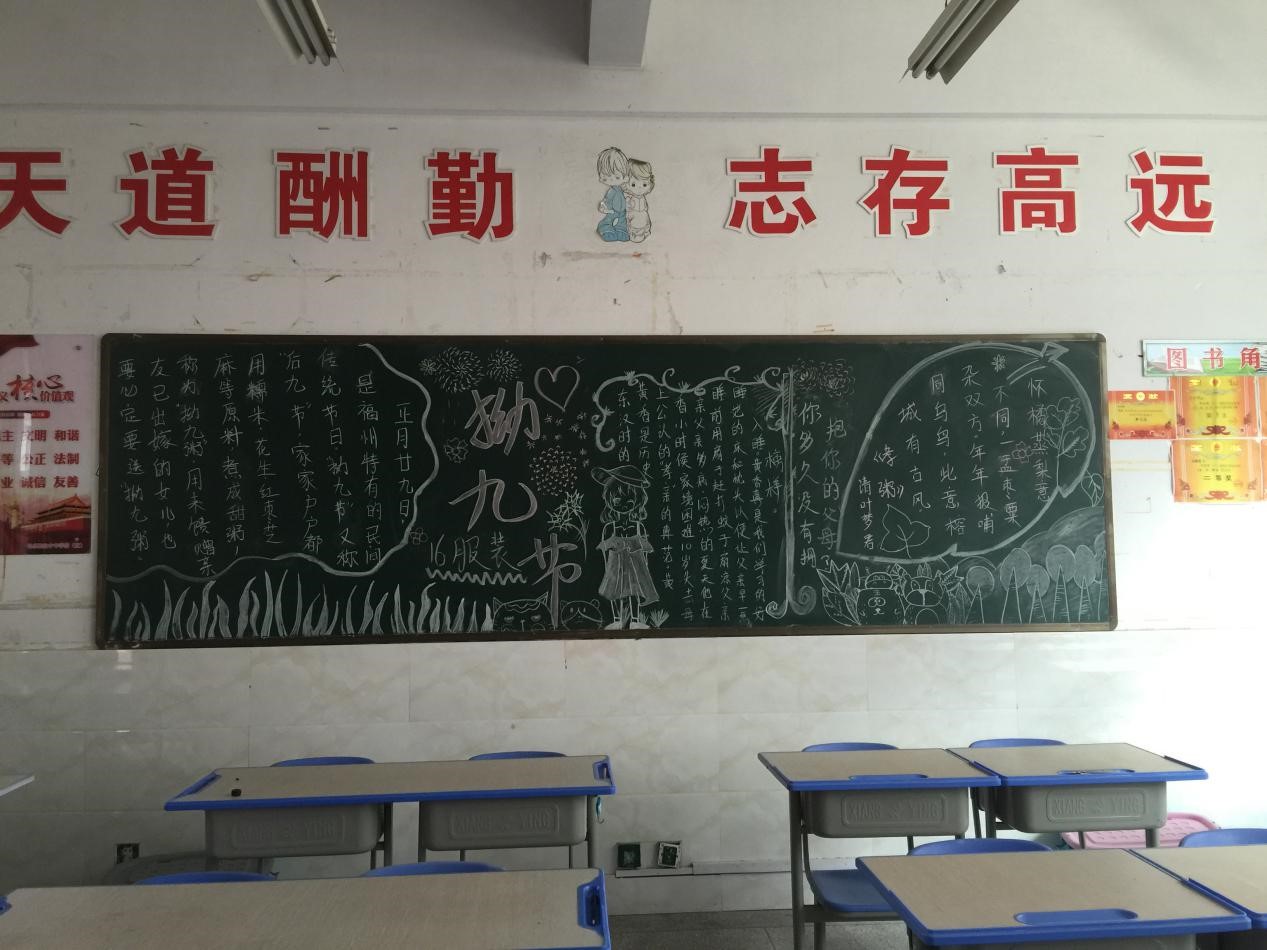 天道酬勤 志存高远
核心
价值观
文明 和谐
公正 法制
诚信 友善
图书角
二等奖
正月廿九日，
是福州特有的民间
传统节日“拗九节”又称
“后九”节，家家户户都
用糯米、花生、红枣、芝
麻等原料，煮成甜粥，
称为“拗九粥”用来馈赠亲
友已出嫁的女儿，也
要必定要送“拗九粥”
拗九节
16服装
东汉时的
黄香是历史
上公认的“孝亲”的典范。黄
睡前用扇子赶打蚊子扇凉父亲
睡觉的床和枕头以使让父亲早一
你多久没有拥
抱你的父母
怀橘共梨意
不同，孟枣栗
杂双方。年年报哺
同乌鸟，此意榕
城有古风
《孝粥》
清叶梦君
XIANG YING
XIANG YING
XIANG YING
XIANG YING